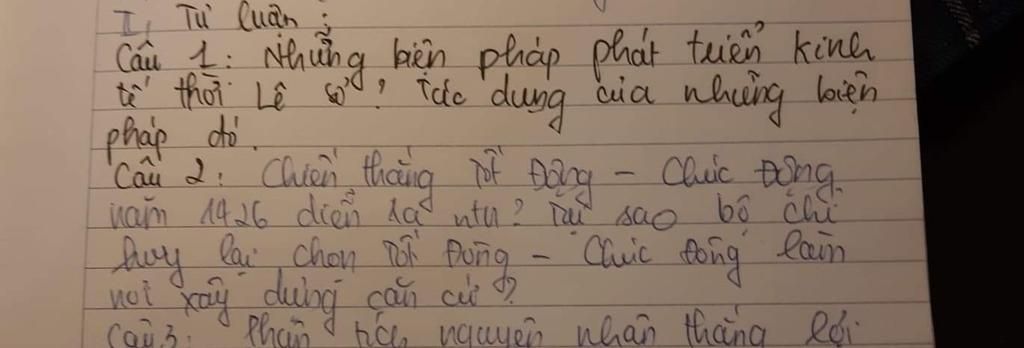 I, Tự luận:
Câu 1: Những biện pháp phát triển kinh
tế thời Lê sơ? Tác dụng của những biện
pháp đó.
Câu 2: Chiến thắng Tốt Động - Chúc Động
năm 1426 diễn ra ntn? Tại sao bộ chỉ
huy lại chọn Tốt Động - Chúc Động làm
nơi xây dựng căn cứ?
Câu 3: Phân tích nguyên nhân thắng lợi